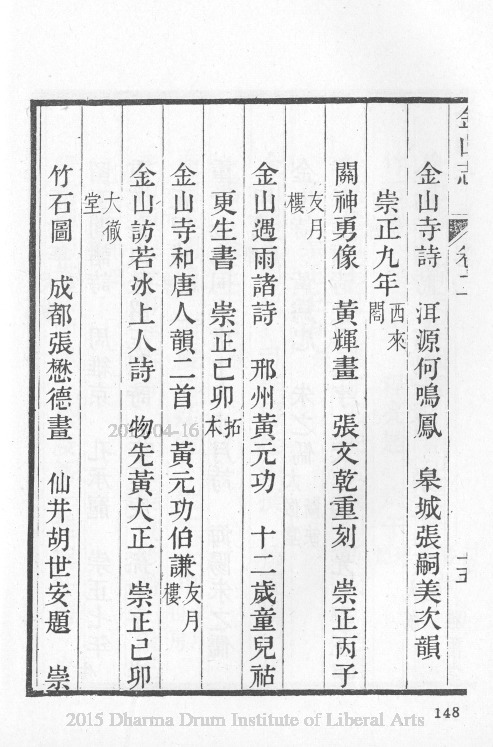 金山志 卷二
金山寺詩 洱源何鳴鳳 皋城張嗣美次韻
崇正九年 西來閣
關神勇像 黃輝畫 張文乾重刻 崇正丙子
友月樓
金山遇雨諸詩 邢州黃元功 十二歲童兒祜
更生書 崇正已卯 拓本
金山寺和唐人韻二首 黃元功伯謙 友月樓
金山訪若冰上人詩 物先黃大正 崇正已卯
大徹堂
竹石圖 成都張懋德畫 仙井胡世安題 崇
148
2015 Dharma Drum Institute of Liberal Arts